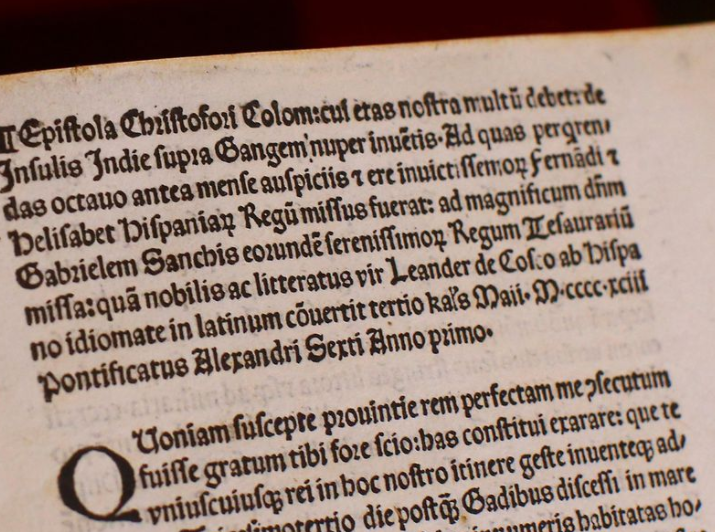 Epistola Christofori Colom: cui etas nostra multū debet: de
Insulis Indie supra Gangem nuper inuētis. Ad quas perqren/
das octauo antea mense auspiciis ⁊ ere inuictissemoꝝ Fernādi ⁊
Helisabet Hispaniaꝝ Regū missus fuerat: ad magnificum dn̄m
Gabrielem Sanchis eorundē serenissimoꝝ Regum Tesaurariū
missa: quā nobilis ac litteratus vir Leander de Cosco ab Hispa
no idiomate in latinum cōuertit tertio kal's Maii. M.cccc.xciii
Pontificatus Alexandri Sexti Anno primo.
QUoniam suscepte prouintie rem perfectam me ꝯsecutum
fuisse gratum tibi fore scio: has constitui exarare: que te
vniuscuiusqꝫ rei in hoc nostro itinere geste inuenteqꝫ ad/
die postqꝫ̄ Gadibus discessi in mare
innumeris habitatas ho/